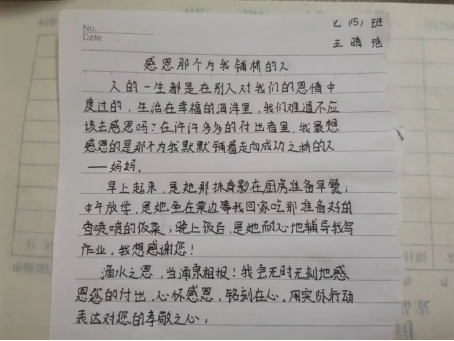 No.
Date
七(5)班
王晴
感恩那个为我铺桥的人
人的一生都是在别人对我们的恩情中
度过的,生活在幸福的海洋里,我们难道不应
该去感恩吗?在许许多多的付出者里,我最想
感恩的是那个为我默默铺着走向成功之桥的人
——妈妈。
早上起来,是她那抹身影在厨房准备早餐;
中午放学,是她坐在桌边等我回家吃那准备好的
香喷喷的饭菜;晚上饭后,是她耐心地辅导我写
作业。我想感谢您!
滴水之恩,当涌泉相报!我会无时无刻地感
恩您的付出,心怀感恩,铭刻在心。用实际行动
表达对您的孝敬之心。